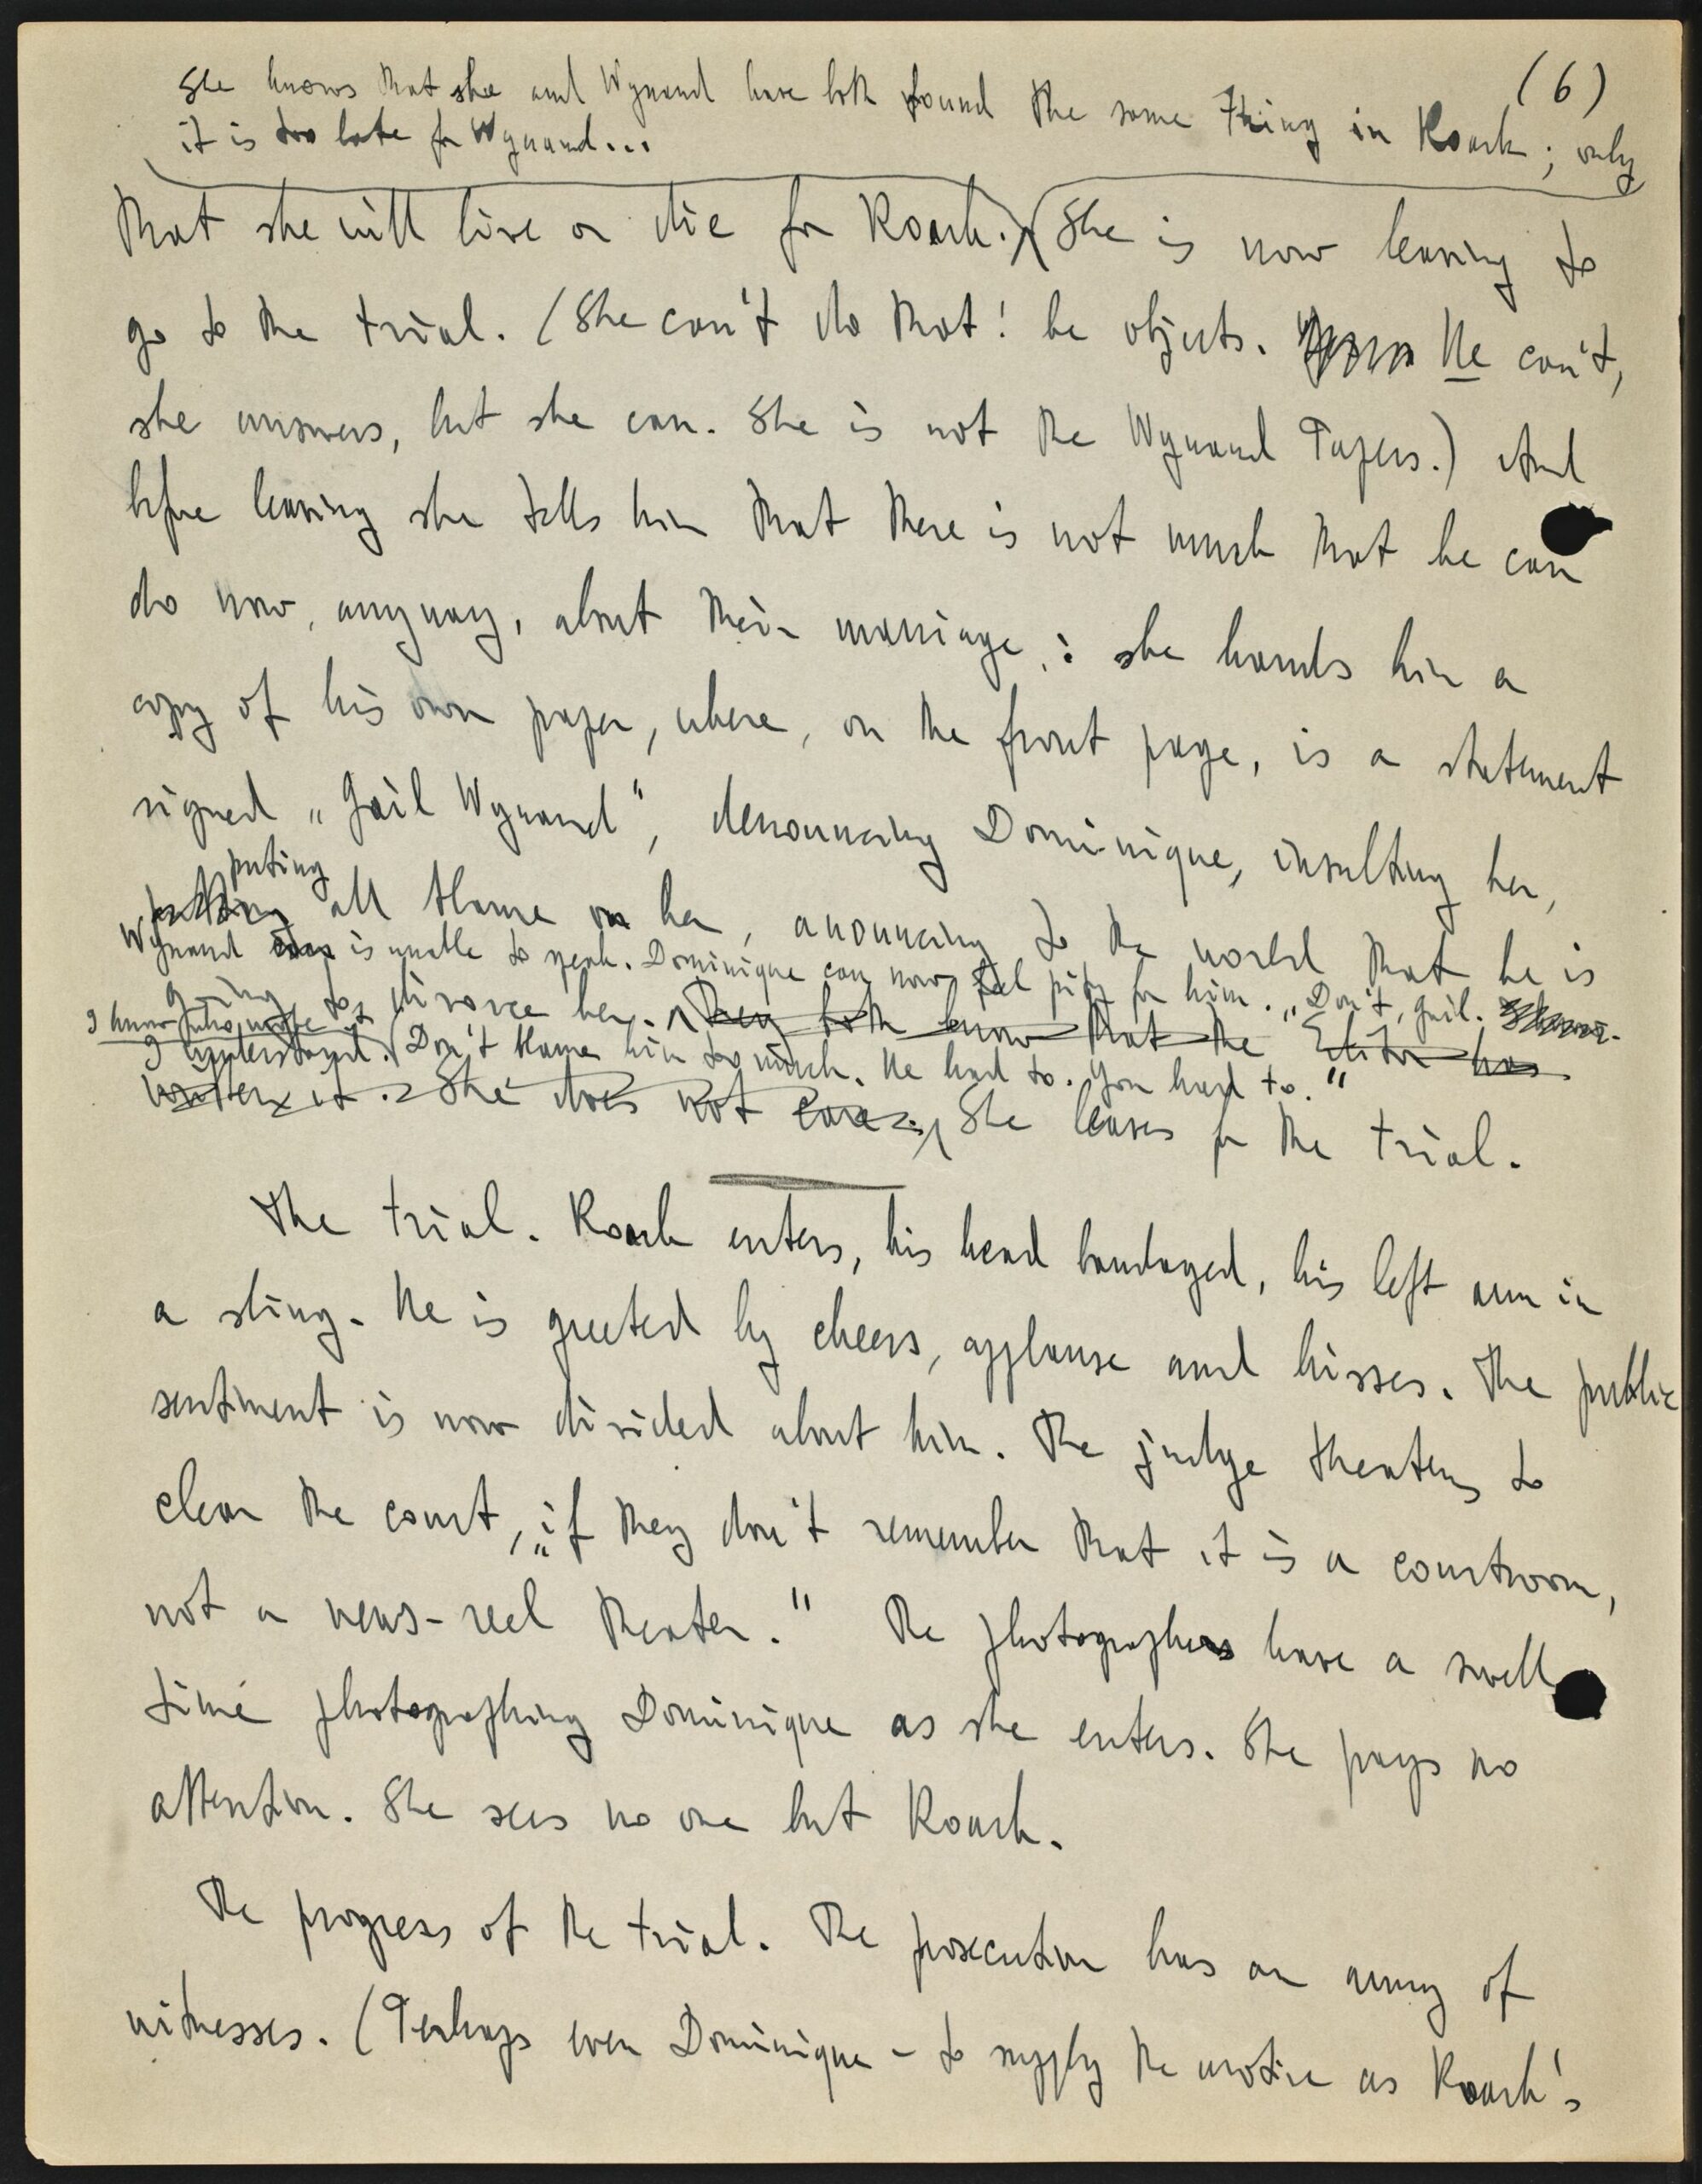 (6)
She knows that she and Wynand have both found the same thing in Roark; only
it is too late for Wynand...
that she will live or die for Roark.) (She is now leaving to
go to the trial. (She can't do that! he objects. He can't,
she answers, but she can. She is not the Wynand Papers.) And
before leaving she tells him that there is not much that he can
do now, anyway, about their marriage: she hands him a
copy of his own paper, where, on the front page, is a statement
signed „Gail Wynand", denouncing Dominique, insulting her,
puting
all blame on her, anouncing to the world that he is
Wynand is unable to speak. Dominique can now feel pity for him. „Don't, Gail.
going to divorce her. They both know that the Editor has
I know who wrote it
I understand. (Don't blame him too much. He had to. You had to."
written it. She does not care. She leaves for the trial.
The trial. Roark enters, his head bandaged, his left arm in
a sling. He is greeted by cheers, applause and hisses. The public
sentiment is now divided about him. The judge theatens to
clear the court, „if they don't remember that it is a courtroom,
not a news-reel theater." The photographers have a swell
time photographing Dominique as she enters. She pays no
attention. She sees no one but Roark.
The progress of the trial. The prosecution has an army of
witnesses. (Perhaps even Dominique – to supply the motive as Roark's